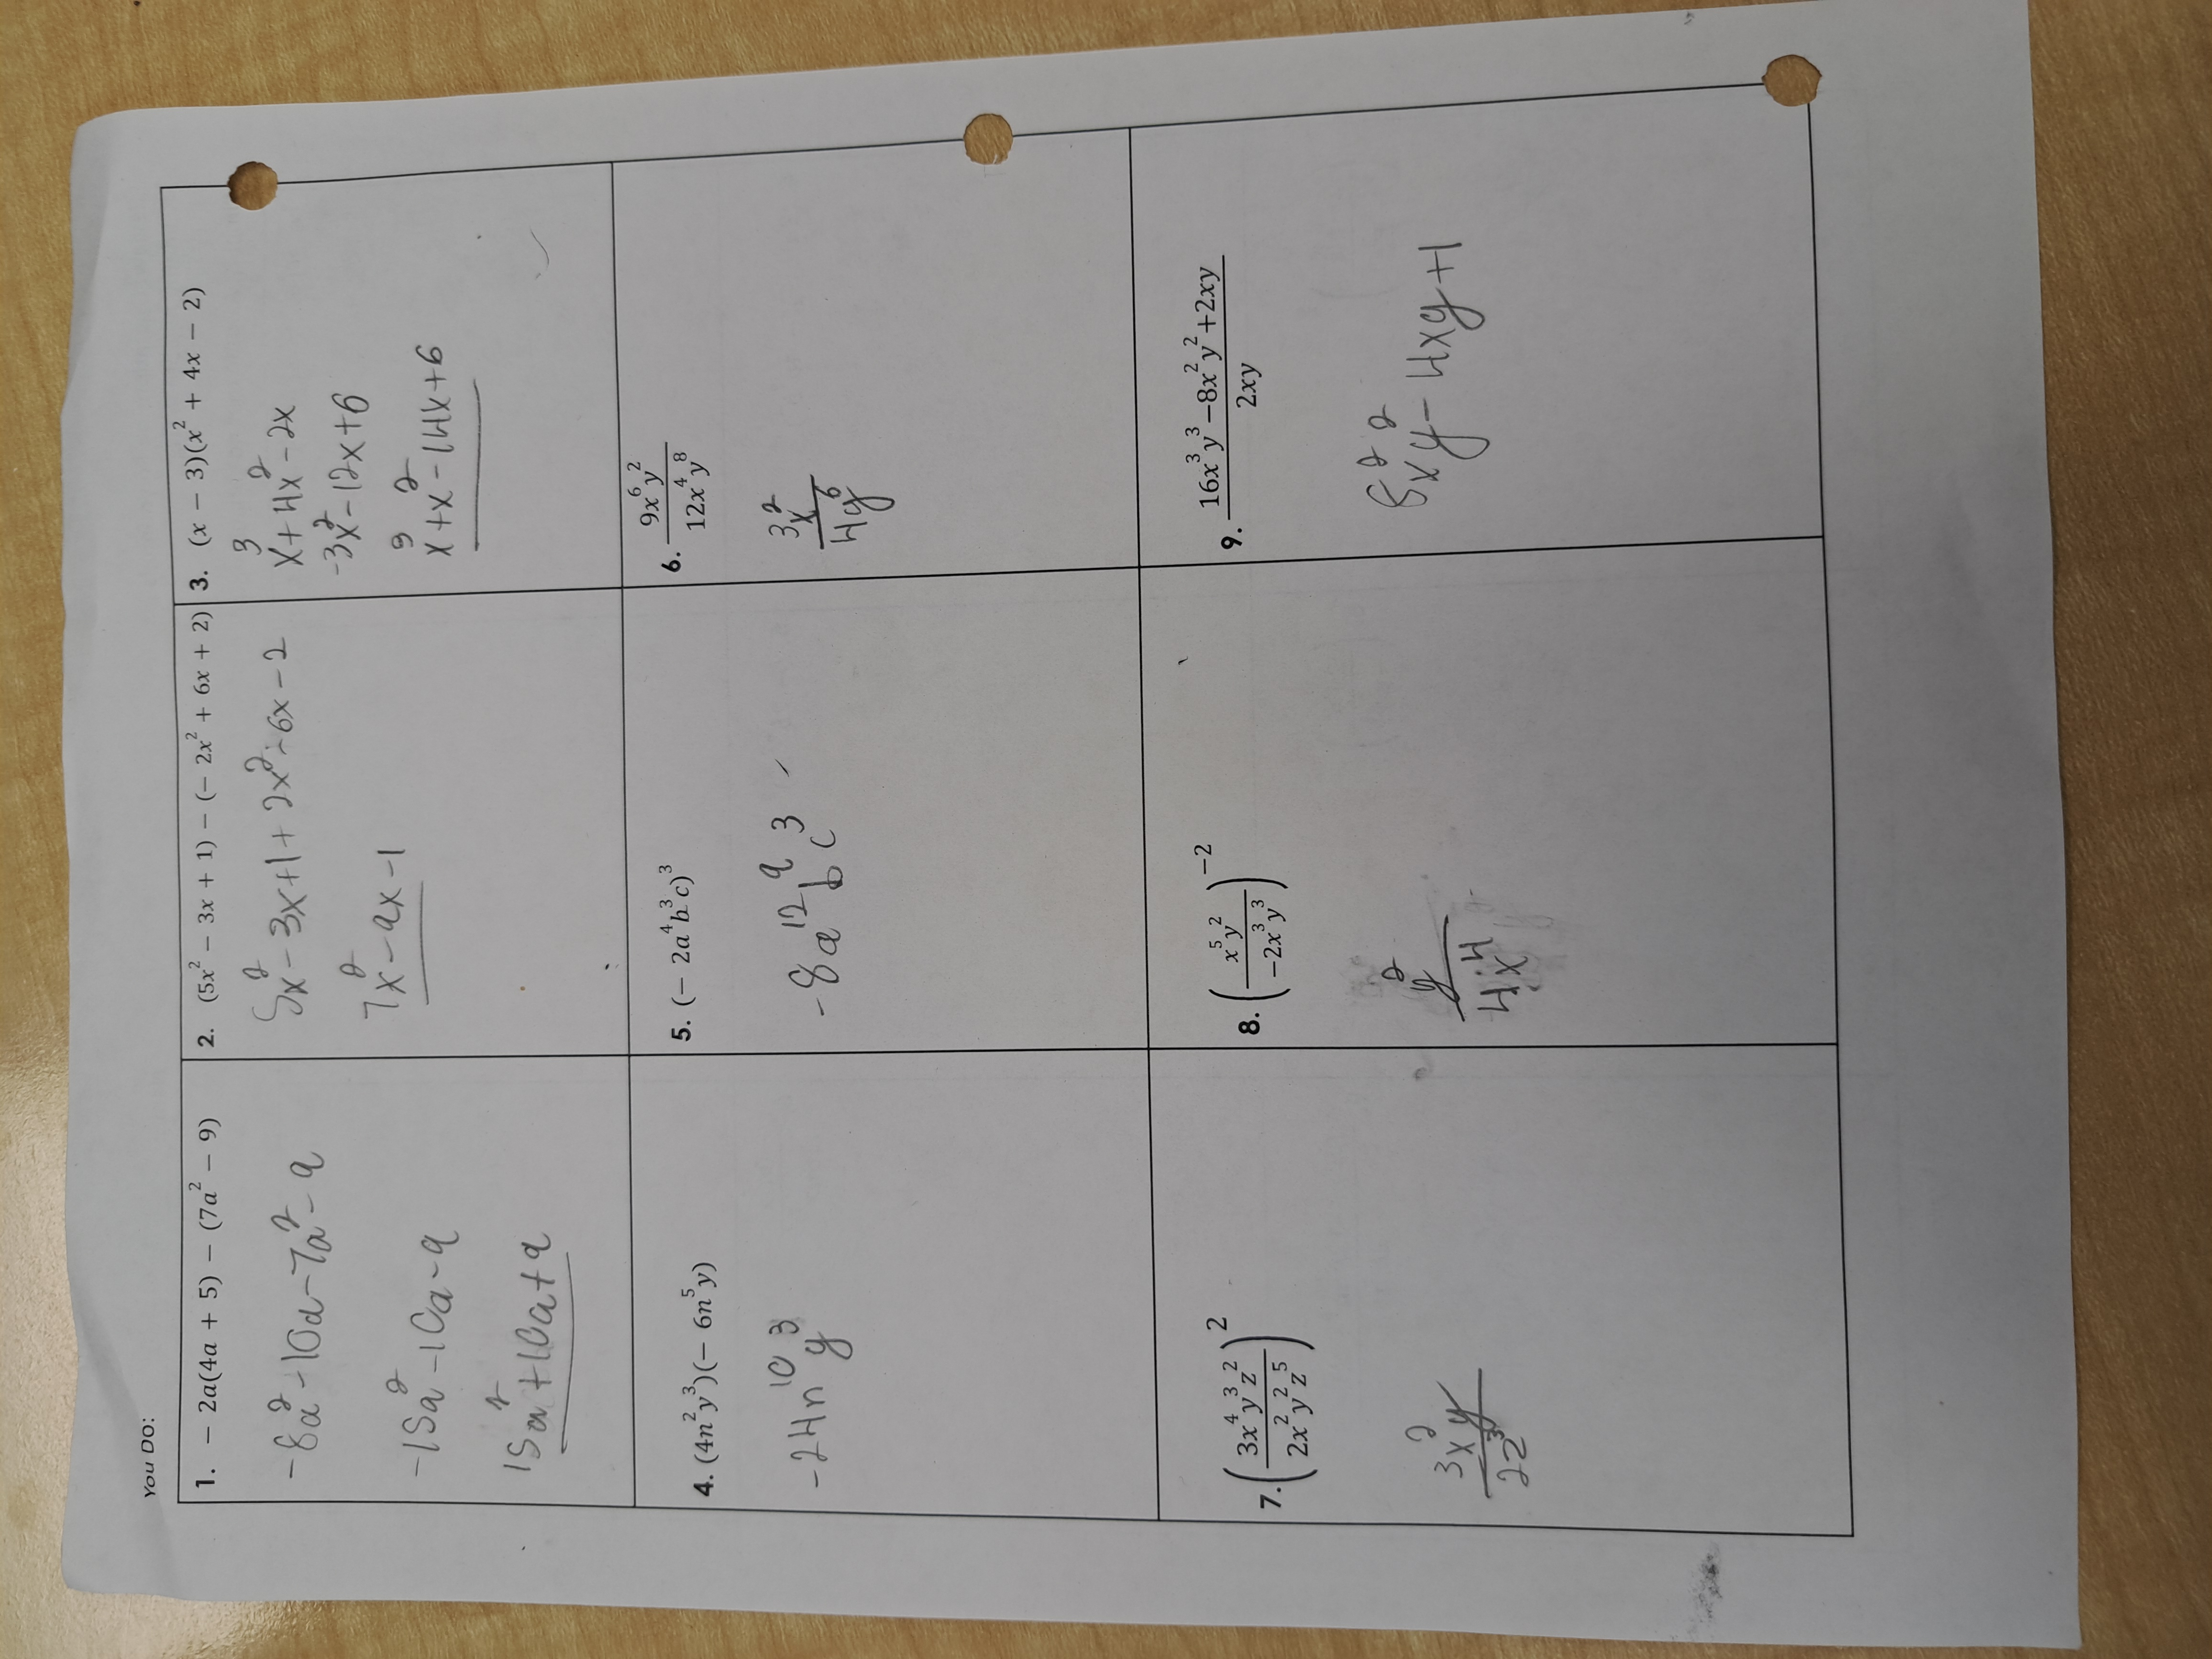 You Do:
1. − 2a(4a + 5) − (7a² − 9)
-8a² -10a-7a² - 9
-15a² -10a-9
15a² +10a+9
2. (5x² − 3x + 1) − (− 2x² + 6x + 2)
5x² - 3x+1+ 2x² -6x-2
7x² - 9x -1
3. (x − 3)(x² + 4x − 2)
x³+4x² -2x
-3x² -12x+6
x³+x² -14x+6
4. (4n²y³)(− 6n⁵y)
-24n¹⁰y³
5. (− 2a⁴b³c)³
-8a¹²b⁹c³
6. 9x⁶y²
12x⁴y⁸
3x²
4y⁶
7. (3x⁴y³z²
2x²y²z⁵)²
3x²y
2z³
8. (x⁵y²
−2x³y³)⁻²
y²
4x⁴
9. 16x³y³−8x²y²+2xy
2xy
8x²y² - 4xy+1